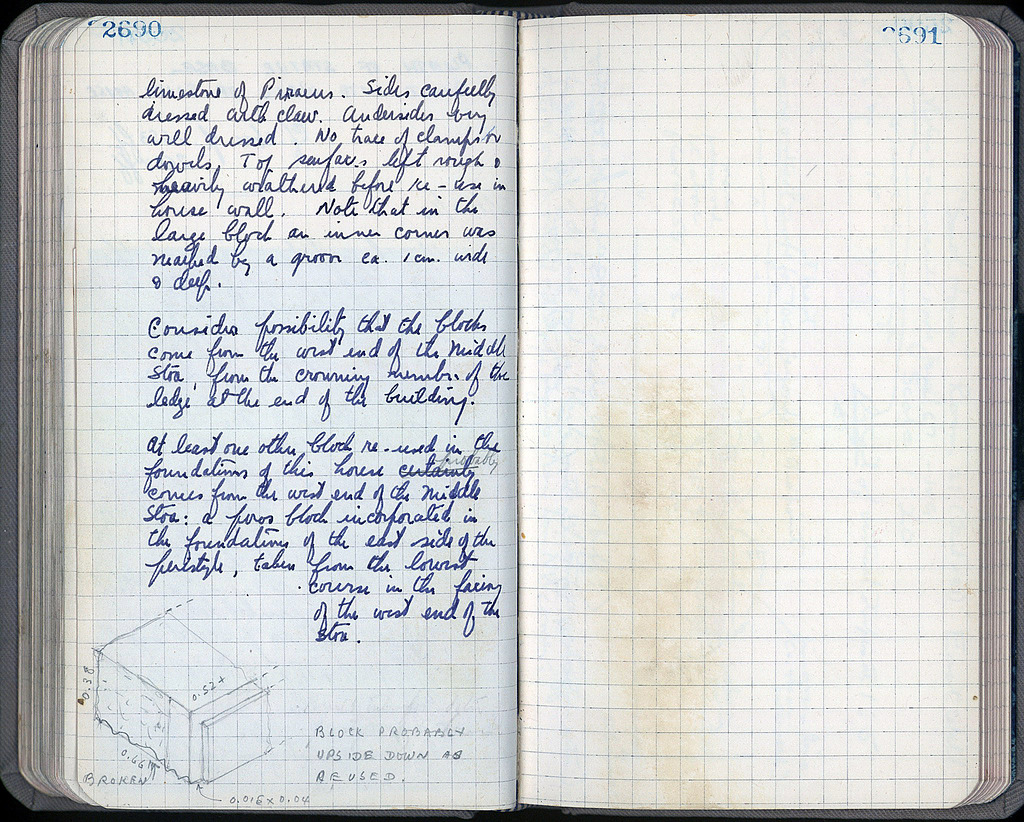 2690
limestone of Piraeus. Sides carefully
dressed with claw. Undersides very
well dressed. No trace of clamps or
dowels. Top surfaces left rough &
heavily weathered before re-use in
house wall. Note that in the
large block an inner corner was
marked by a groove ca. 1 cm. wide
& deep.
Consider possibility that the blocks
come from the west end of the Middle
Stoa, from the crowning member of the
ledge at the end of the building.
At least one other block re-used in the
foundations of this house certainly probably
comes from the west end of the Middle
Stoa: a poros block incorporated in
the foundations of the east side of the
peristyle, taken from the lowest
course in the facing
of the west end of the
Stoa.
0.38
0.52+
0.66
BROKEN
0.016 x 0.04
BLOCK PROBABLY
UPSIDE DOWN AS
REUSED.
2691